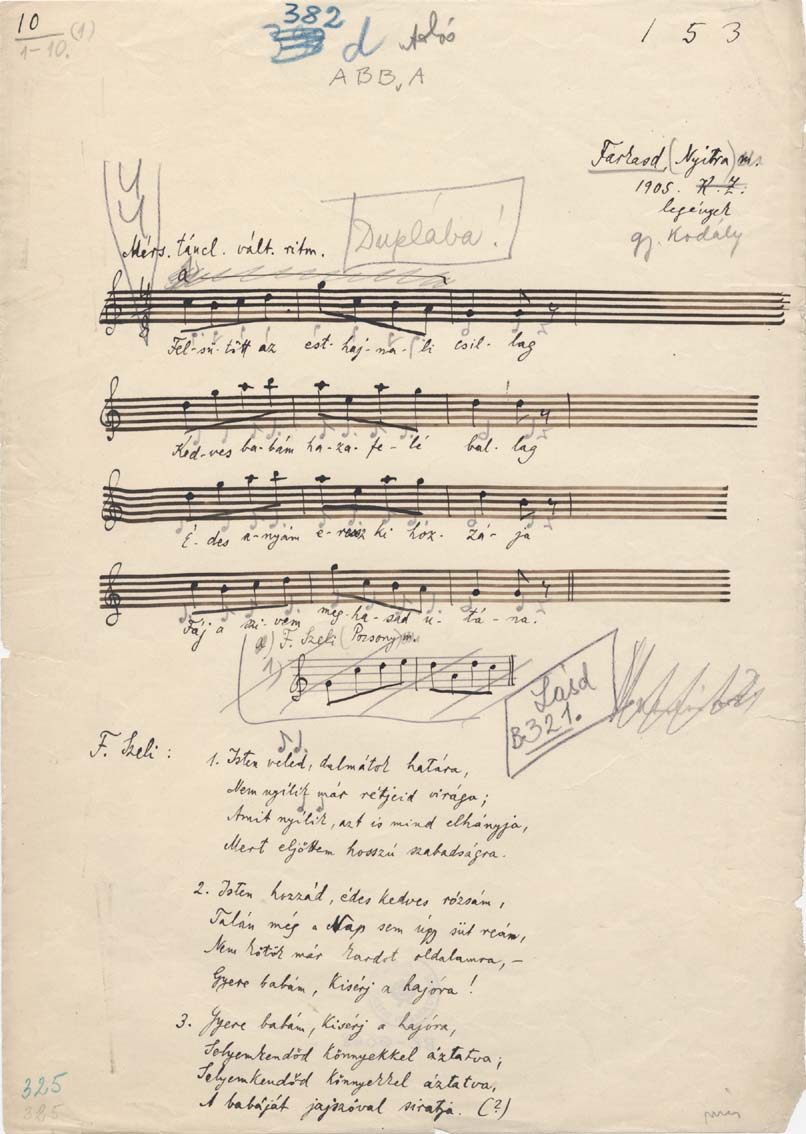 10
1–10. (1)
382
d
A B B A
1 5 3
Farkasd (Nyitra) m.
1905. K. Z.
legények
gy. Kodály
4
4
Duplába!
Mérs. táncl. vált. ritm.
a
Fel-sü-tött az est-haj-na-li csil-lag
Ked-ves ba-bám ha-za-fe-lé bal-lag
É-des a-nyám e-ressz ki hoz-zá-ja
Fáj a szi-vem meg-ha-sad u-tá-na.
F. Szeli (Pozsony) m.
1)
Lásd
B. 321.
F. Szeli:
1. Isten veled, dalmátok határa,
Nem nyílik már rétjeid virága;
Amit nyílik, azt is mind elhányja,
Mert eljöttem hosszú szabadságra.
2. Isten hozzád, édes kedves rózsám,
Talán még a Nap sem úgy süt reám,
Nem kötök már kardot oldalamra, –
Gyere babám, kisérj a hajóra!
3. Gyere babám, kisérj a hajóra,
Selyemkendőd könnyekkel áztatva;
Selyemkendőd könnyekkel áztatva,
A babáját jajszóval siratja. (?)
325
325